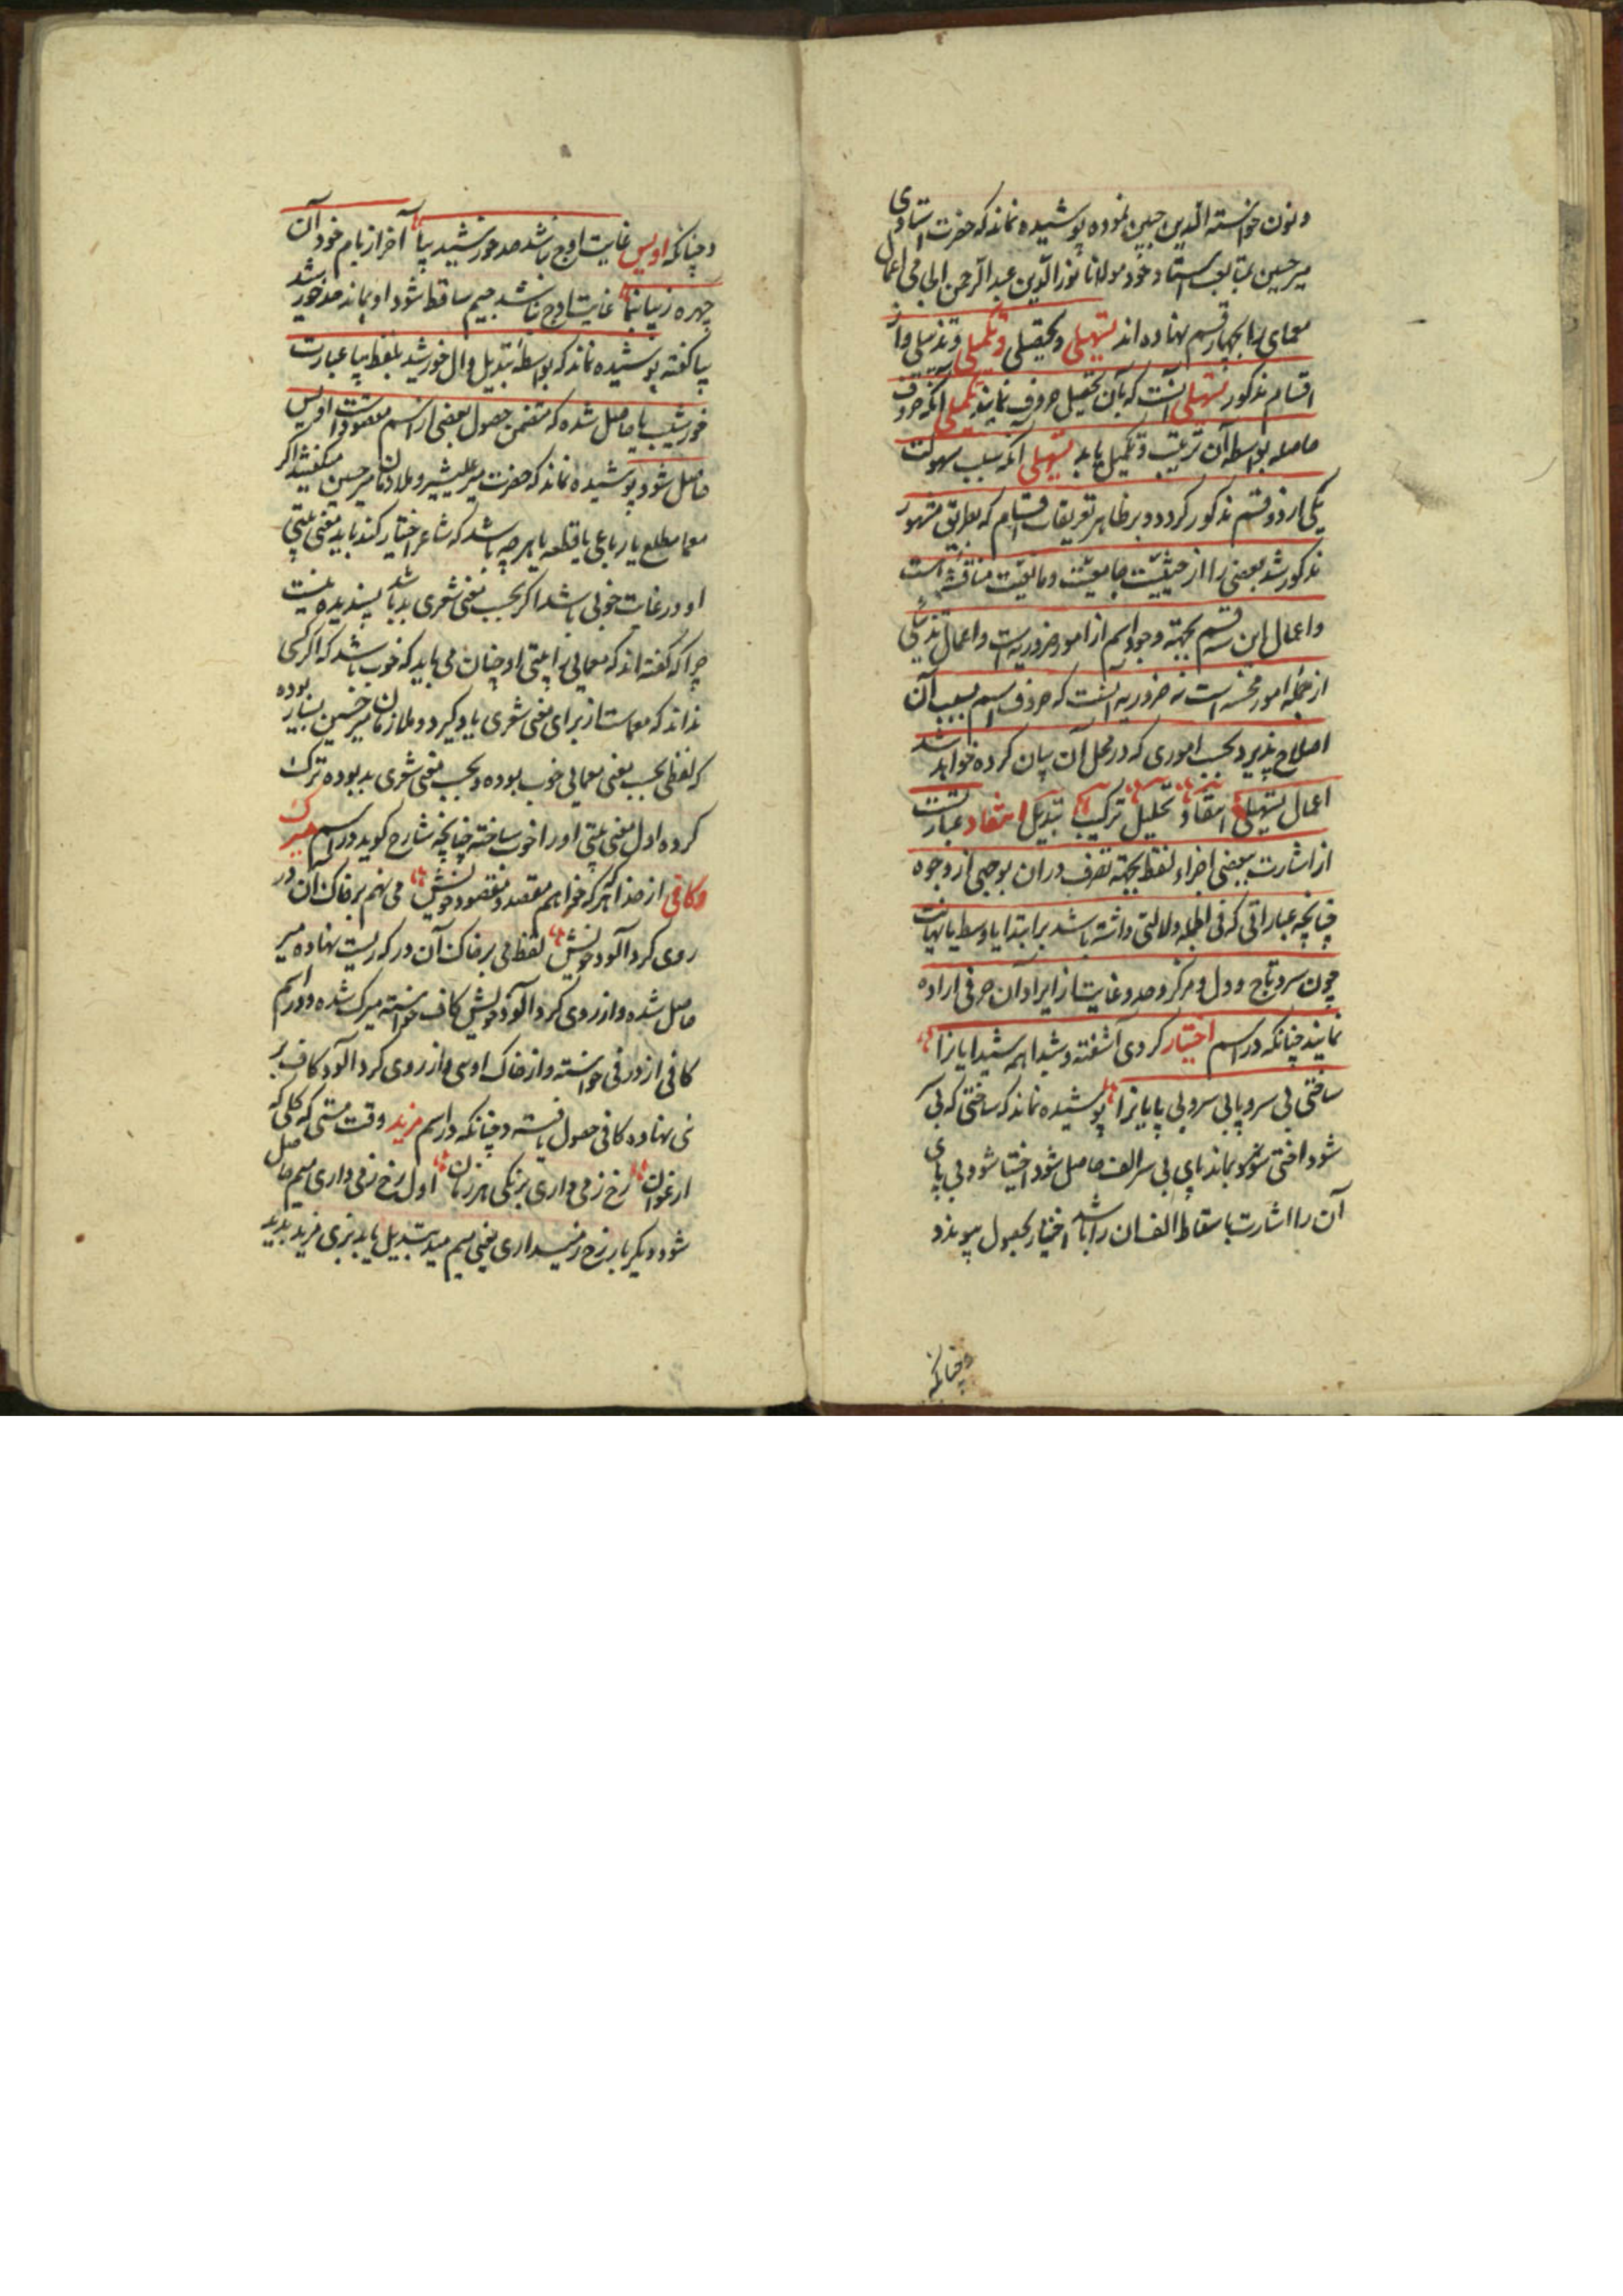 ونون خواسته الدین حبین نموده پوشیده نماند که حضرت استادی
میر حسین بمتابعت استاد خود مولانا نور الدین عبد الرحمن الجامی اعمال
معمای را بچهار قسم نهاده اند تسهیلی و تحصیلی و تکمیلی و تذییلی و از
اقسام مذکور تسهیلی آنست که بآن تحصیل حروف نمایند تکمیلی آنکه حروف
حاصله بواسطه آن ترتیب و تکمیل یابد تسهیلی آنکه بسبب سهولت
یکی از دو قسم مذکور کردد و بر ظاهر تعریفات اقسام که بطریق مشهور
مذکور شد بعضی را از حیثیت جامعیت و مانعیت مناقشه است
و اعمال این سه قسم بجهة وجود اسم از امور ضروریه است و اعمال تذییلی
از جمله امور محسنه است نه ضروریه آنست که حروف اسم بسبب آن
اصلاح پذیرد بحسب اموری که در محل آن بیان کرده خواهد شد
اعمال تسهیلی انتقاد تحلیل ترکیب تبدیل انتقاد عبارتست
از اشارت ببعضی اجزاء لفظ بجهة تصرف دران بوجهی از وجوه
چنانچه عباراتی که فی الجمله دلالتی داشته باشد بر ابتدا یا وسط یا نهایت
چون سر و تاج و دل و مرکز و حد و غایت از ایراد آن حرفی اراده
نمایند چنانکه در اسم اختیار کردی آشفته و شیدا همه شیدایانرا
ساختی بی سر و پا بی سر و بی پایانرا پوشیده نماند که ساختی که بی سر
شود اختی بماند پای بی سر الف حاصل شود اختیا شود بی پای
آن را اشارت باسقاط الف ان را باشد اختیار بحصول پیوندد
وچنانکه
وچنانکه اویس غایت اوج باشد صد خورشید بپا آخر از بام خود آن
چهره زیبا بنما غایت اوج باشد جیم ساقط شود او بماند صد خورشید
بپا گفته پوشیده نماند که بواسطه تبدیل دال خورشید بلفظ بپا عبارت
خورشیب پا حاصل شده که متضمن حصول بعضی از اسم مقصود است اویس
حاصل شود پوشیده نماند که حضرت میر علیشیر و ملازمان میر حسین میکفتند اکر
معما مطلع یا رباعی یا قطعه یا هر چه باشد که شاعر اختیار کند باید معنی بیتی
او در غایت خوبی باشد اکر بحسب معنی شعری بد باشد پسندیده نیست
چرا که گفته اند که معمایی را بیتی او چنان می باید که خوب باشد که اکر کسی
نداند که معماست از برای معنی شعری یاد کیرد و ملازمان میر حسین بسیار بوده
که لفظی بحسب معنی معمایی خوب بوده و بحسب معنی شعری بد بوده ترک
کرده اول معنی بیتی او را خوب ساخته چنانچه شارح کوید در اسم میرک
و کافی از خدا هر که خواهم مقصد و مقصود خویش می نهم بر خاک آن در
روی کرد آلود خویش لفظ می بر خاک آن در که ریست نهاده میر
حاصل شده و از روی کرد آلود خویش کاف خواسته میرک شده و در اسم
کافی از در فی خواسته و از خاک اوسی و از روی کرد آلود کاف بر
نی نهاده کافی حصول یافته و چنانکه در اسم مزید وقت مستی که کلی که
ارغوان رخ ز می داری برنکی هر زمان اول رخ ز می داری میم حاصل
شود و دیکر بار رخ ز می داری یعنی میم مید تبدیل یابد بزی مزید پدید